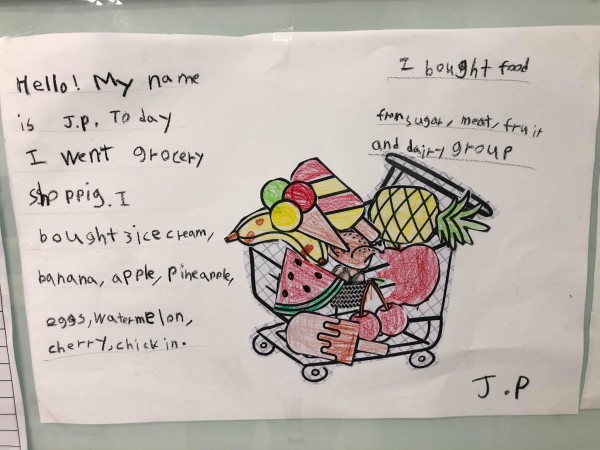 Hello! My name
is J.P. To day
I went grocery
shoppig. I
bought 3 ice cream,
banana, apple, Pineapple,
eggs, watermelon,
cherry, chickin.
I bought food
from sugar, meat, fruit
and dairy group
J.P